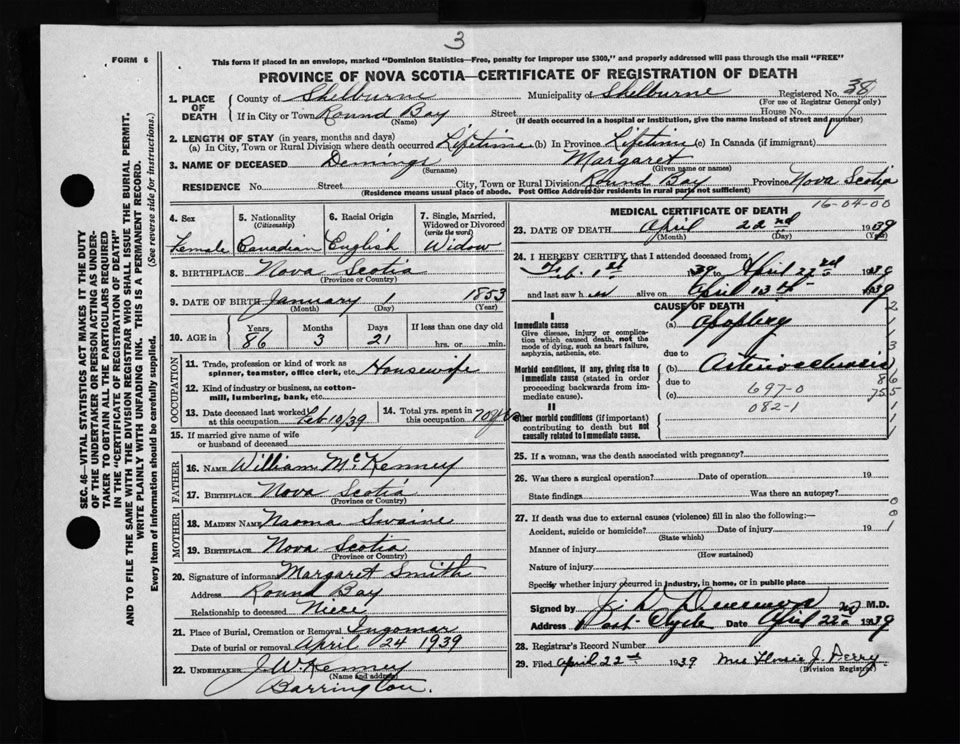 3
FORM 6
This form if placed in an envelope, marked "Dominion Statistics—Free, penalty for improper use $300," and properly addressed will pass through the mail "FREE"
PROVINCE OF NOVA SCOTIA—CERTIFICATE OF REGISTRATION OF DEATH
SEC. 46—VITAL STATISTICS ACT MAKES IT THE DUTY
OF THE UNDERTAKER OR PERSON ACTING AS UNDER-
TAKER TO OBTAIN ALL THE PARTICULARS REQUIRED
IN THE "CERTIFICATE OF REGISTRATION OF DEATH"
AND TO FILE THE SAME WITH THE DIVISION REGISTRAR WHO SHALL ISSUE THE BURIAL PERMIT.
WRITE PLAINLY WITH UNFADING INK. THIS IS A PERMANENT RECORD.
Every item of Information should be carefully supplied. (See reverse side for instructions.)
1. PLACE OF DEATH
County of Shelburne Municipality of Shelburne Registered No. 38
(For use of Registrar General only)
If in City or Town Round Bay Street House No.
(Name) (If death occurred in a hospital or institution, give the name instead of street and number)
2. LENGTH OF STAY (in years, months and days)
(a) In City, Town or Rural Division where death occurred Lifetime (b) In Province Lifetime (c) In Canada (if immigrant)
3. NAME OF DECEASED Demings Margaret
(Surname) (Given name or names)
RESIDENCE No. Street City, Town or Rural Division Round Bay Province Nova Scotia
(Residence means usual place of abode. Post Office Address for residents in rural parts not sufficient)
16-04-00
4. Sex
Female
5. Nationality
(Citizenship)
Canadian
6. Racial Origin
English
7. Single, Married, Widowed or Divorced
(write the word)
Widow
8. BIRTHPLACE Nova Scotia
(Province or Country)
9. DATE OF BIRTH January 1 1853
(Month) (Day) (Year)
10. AGE in Years Months Days If less than one day old
86 3 21 hrs. or min.
OCCUPATION
11. Trade, profession or kind of work as
spinner, teamster, office clerk, etc Housewife
12. Kind of industry or business, as cotton-
mill, lumbering, bank, etc.
13. Date deceased last worked
at this occupation Feb 10/39
14. Total yrs. spent in
this occupation 70 yrs
15. If married give name of wife
or husband of deceased
FATHER
16. NAME William McKenney
17. BIRTHPLACE Nova Scotia
(Province or Country)
MOTHER
18. MAIDEN NAME Naoma Swaine
19. BIRTHPLACE Nova Scotia
(Province or Country)
20. Signature of informant Margaret Smith
Address Round Bay
Relationship to deceased Niece
21. Place of Burial, Cremation or Removal Ingomar
Date of burial or removal April 24 1939
22. UNDERTAKER J. W. Kenney
(Name and address)
Barrington.
MEDICAL CERTIFICATE OF DEATH
23. DATE OF DEATH April 22nd 1939
(Month) (Day) (Year)
24. I HEREBY CERTIFY, that I attended deceased from:
Feb. 1st 1939 to April 22nd 1939
and last saw h alive on April 13th 1939
CAUSE OF DEATH
I
Immediate cause
Give disease, injury or complica-
tion which caused death, not the
mode of dying, such as heart failure,
asphyxia, asthenia, etc.
(a) Apoplexy
due to
Morbid conditions, if any, giving rise to
immediate cause (stated in order
proceeding backwards from im-
mediate cause).
(b)
due to
697-0
(c)
II
082-1
Other morbid conditions (if important)
contributing to death but not
causally related to immediate cause.
25. If a woman, was the death associated with pregnancy?
26. Was there a surgical operation? Date of operation 19
State findings Was there an autopsy?
27. If death was due to external causes (violence) fill in also the following:—
Accident, suicide or homicide? Date of injury 19
(State which)
Manner of injury
(How sustained)
Nature of injury
Specify whether injury occurred in industry, in home, or in public place
Signed by M.D.
Address Date April 22nd 1939
28. Registrar's Record Number
29. Filed April 22nd 1939 Mrs J. Perry
(Division Registrar)